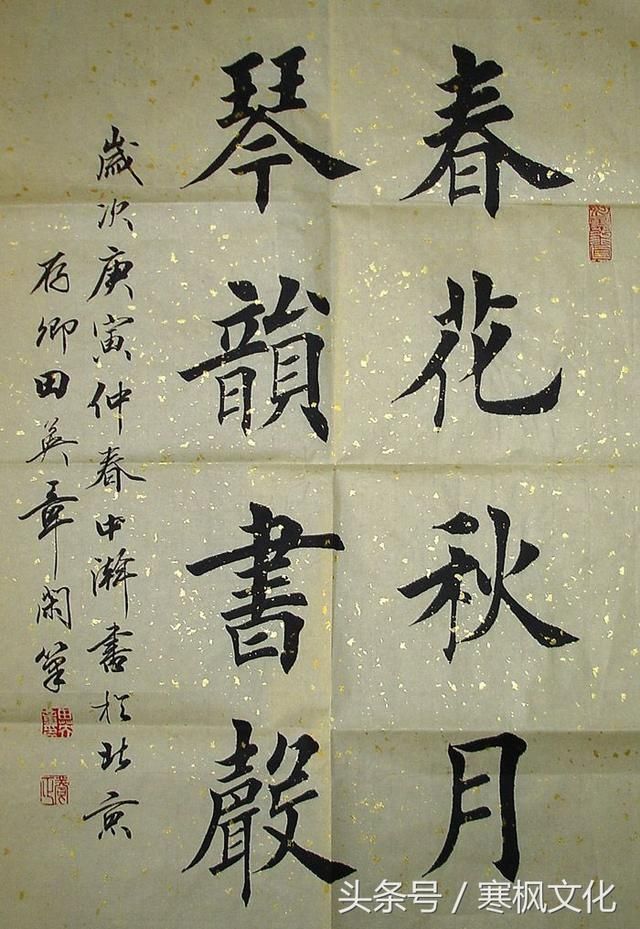 春花秋月
琴韻書聲
歲次庚寅仲春中澣書於北京
存卿田英章閑筆
头条号 / 寒枫文化